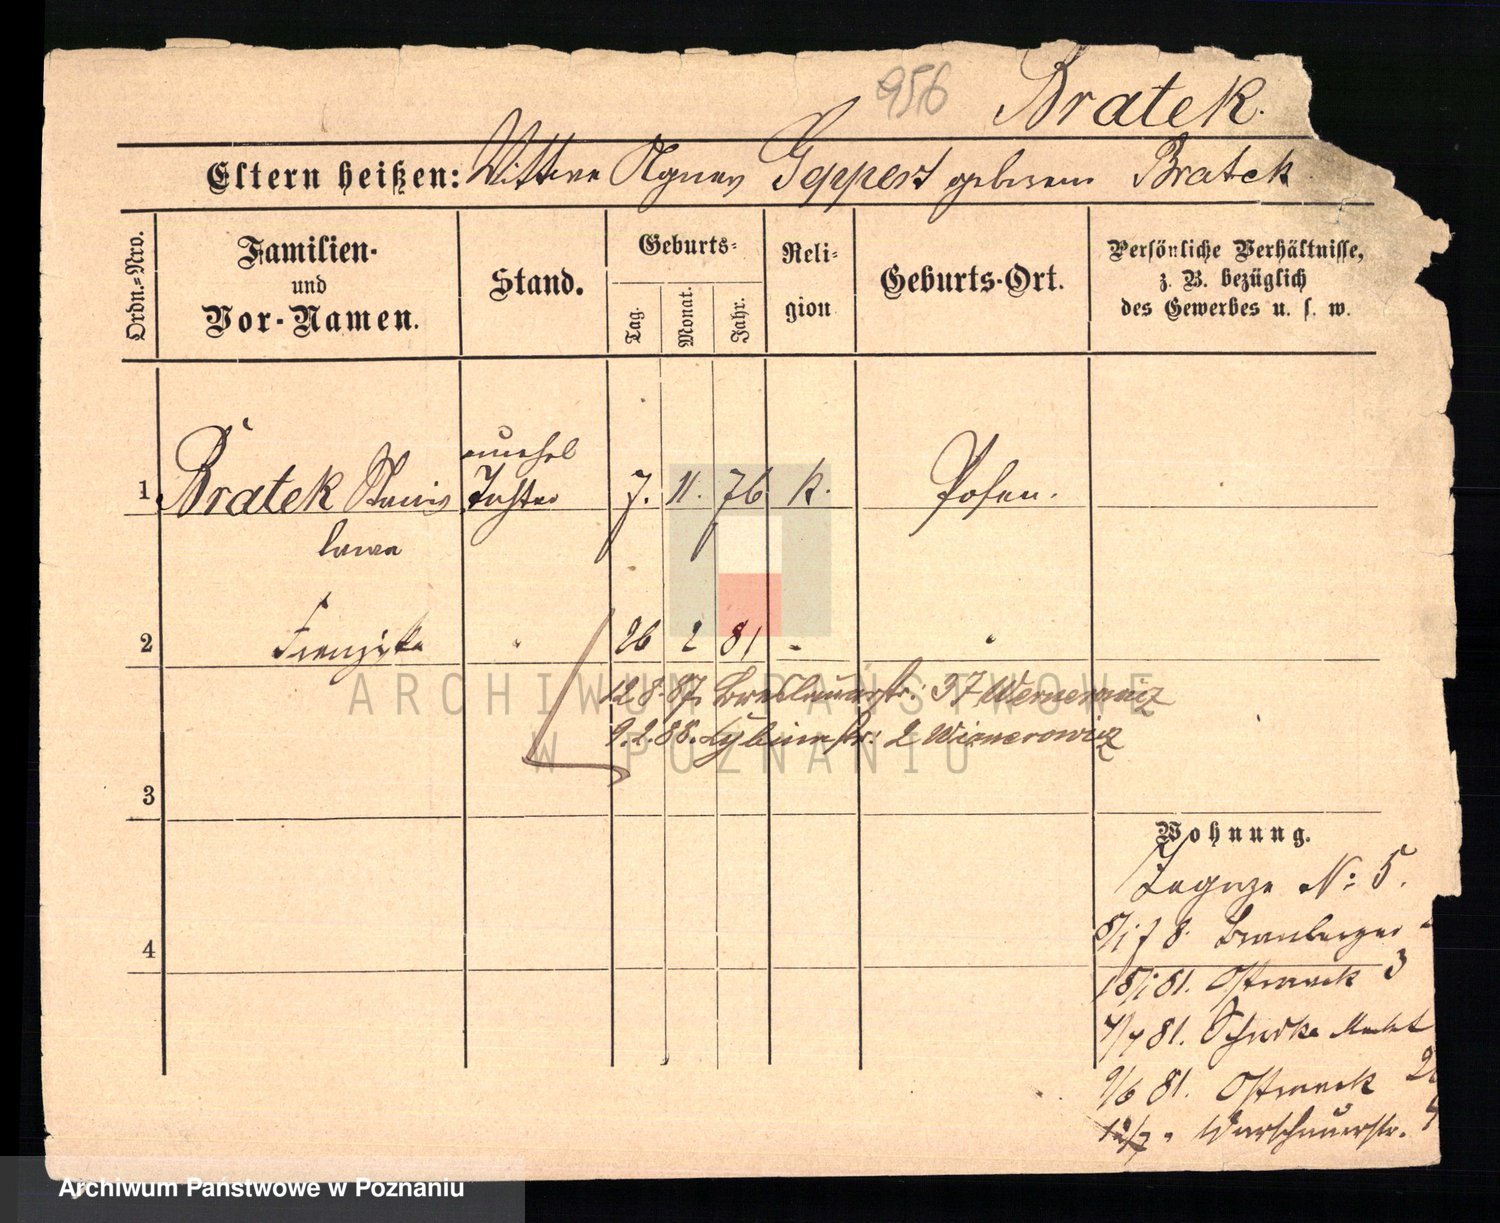 956
Bratek.
Eltern heißen: Wittwe Agnes Geppert geborene Bratek
Ordn.-Nro.
Familien- und Vor-Namen.
Stand.
Geburts-
Tag.
Monat.
Jahr.
Religion
Geburts-Ort.
Persönliche Verhältnisse, z. B. bezüglich des Gewerbes u. s. w.
unehel
1 Bratek Stanis Tochter 7. 11. 76 k. Posen.
lawa
2 Franziska " 26 2 81 " "
12.8.87. Breslauerstr: 37
9.2.88. 2 Wisnerowicz
3
Wohnung.
Zagoze No: 5.
4
Bromberger
18/1 81. Ostrowek 3
4/4 81. Schrodka Markt
9/6 81. Ostrowek
12/7 " Warschauerstr.
ARCHIWUM PAŃSTWOWE
W POZNANIU
Archiwum Państwowe w Poznaniu